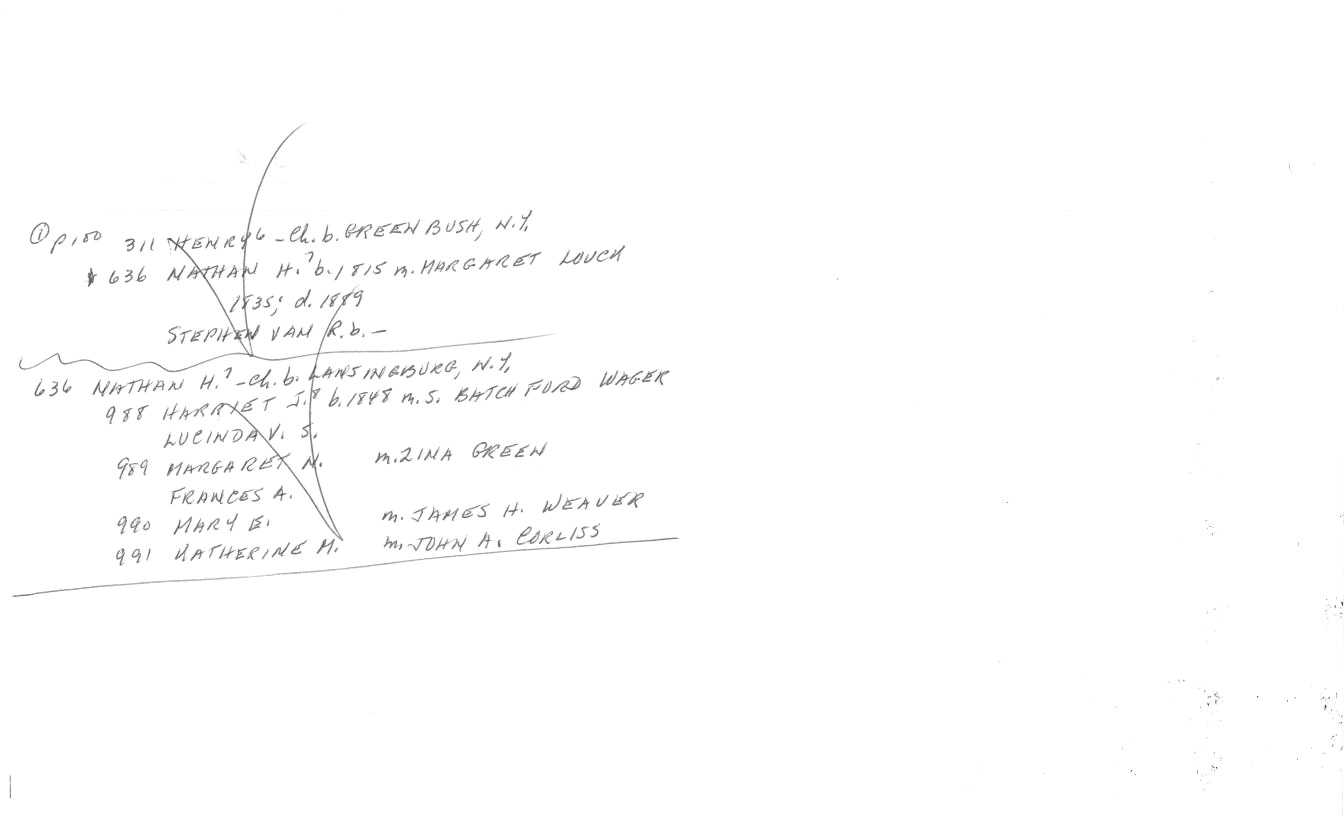 ① p. 100 311 HENRY⁶ - Ch. b. GREENBUSH, N.Y.
636 NATHAN H.⁷ b. 1815 m. MARGARET LOUCK
1835; d. 1889
STEPHEN VAN R. b. —
636 NATHAN H.⁷ - Ch. b. LANSINGBURG, N.Y.
988 HARRIET J.⁸ b. 1848 m. S. BATCH FORD WAGER
LUCINDA V. S.
989 MARGARET N. m. ZINA GREEN
FRANCES A.
990 MARY E. m. JAMES H. WEAVER
991 KATHERINE M. m. JOHN A. CORLISS